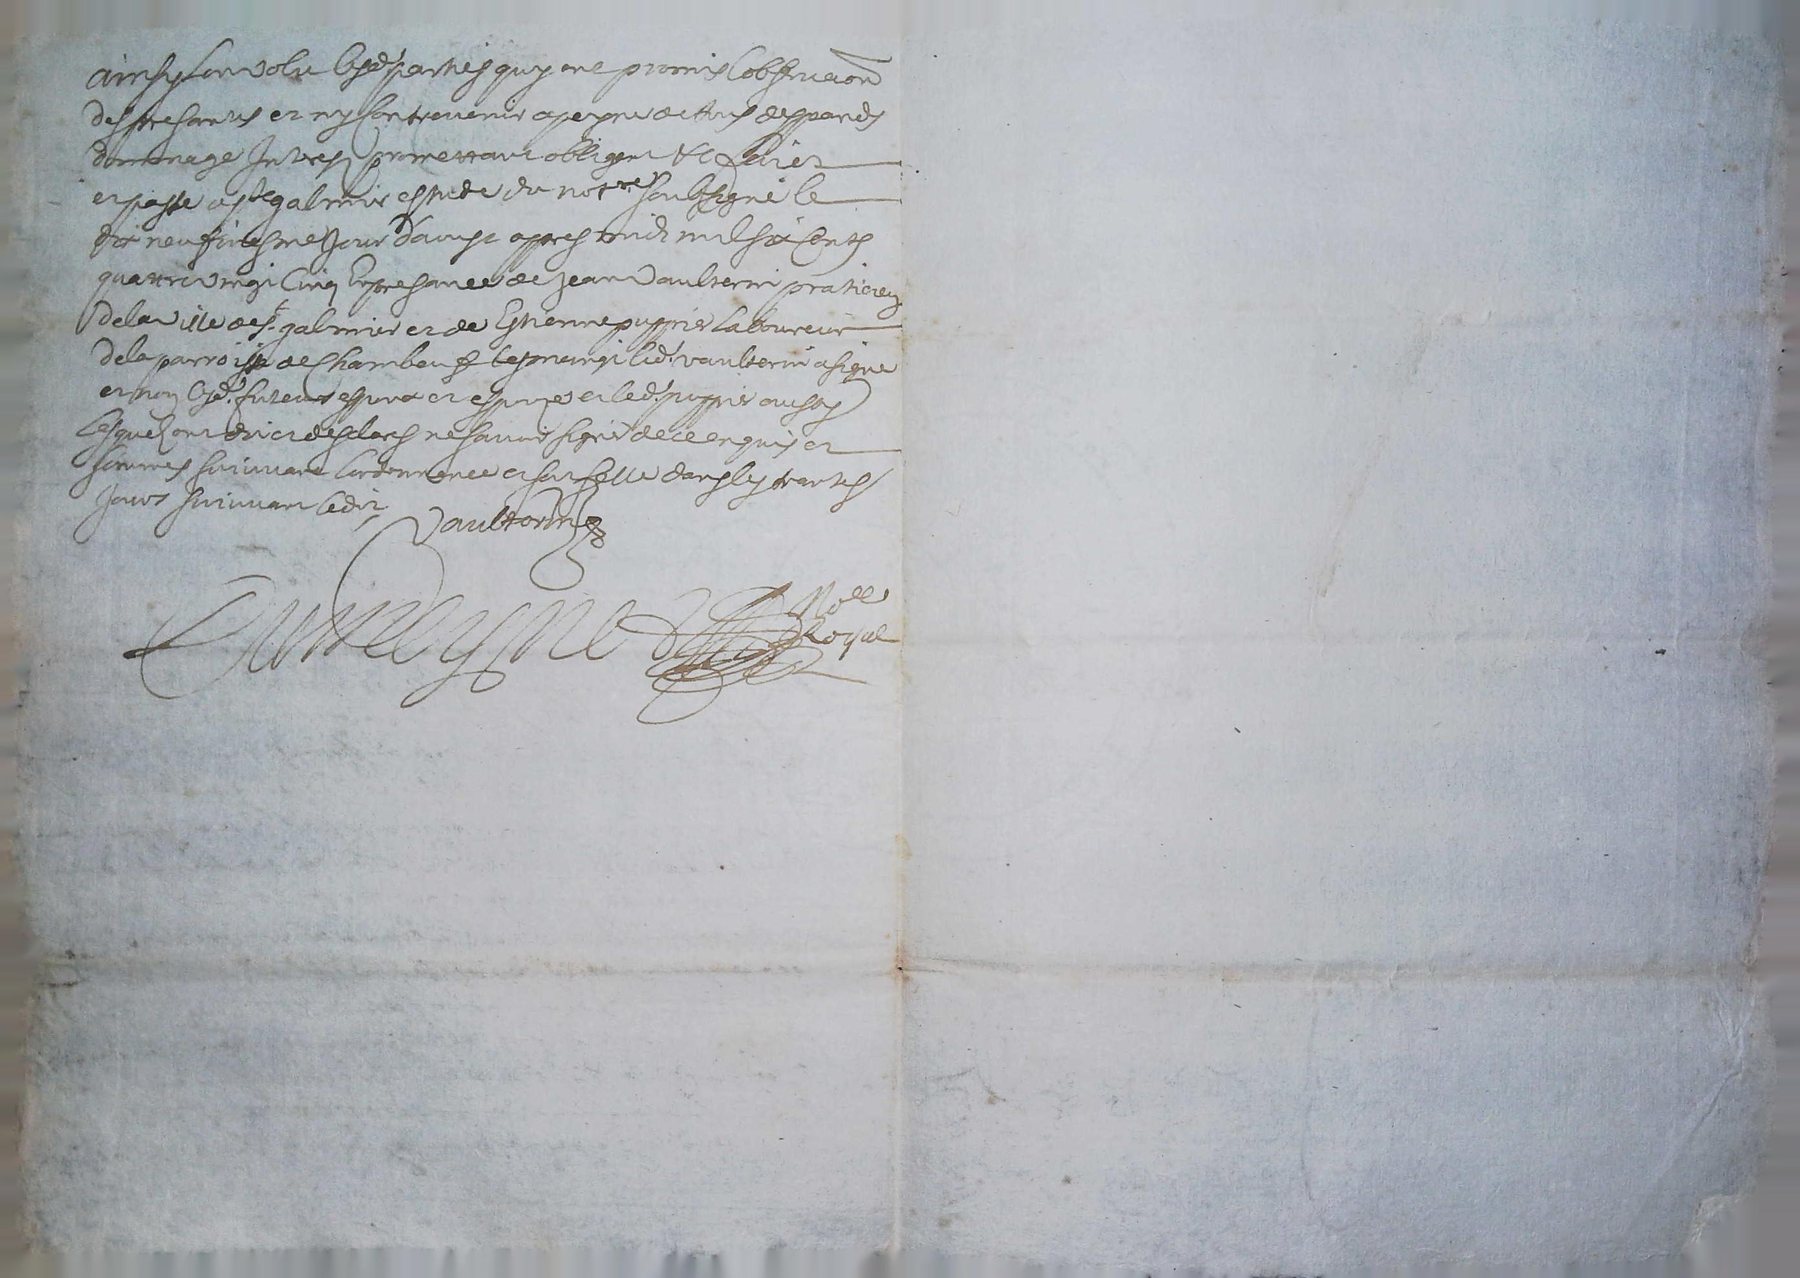 ainsy lon volu lesd. parties quy ont promis lobservaon
des presantes et ny contrevenir a peyne de tous despands
dommage Intrest promettant obligent &c faict
et passe a st galmier estude du notre soubsigne le
dix neufviesme Jour daoust appres midi mil six cents
quattre vingt cinq En presance de Jean Vaulterin praticien
de la ville de st. galmier et de Estienne puppier laboureur
de la parroisse de Chambeuf led. vaulterin a signe
et non lesd. futeurs espoux et espouze et led. puppier aussy
lesquels ont dit et desclare ne savoir signer de ce enquis et
sommes suivvant lordonnance et sur selle dans les trantes
Jours suivvant ledit
Vaulterin
Notte
Royal